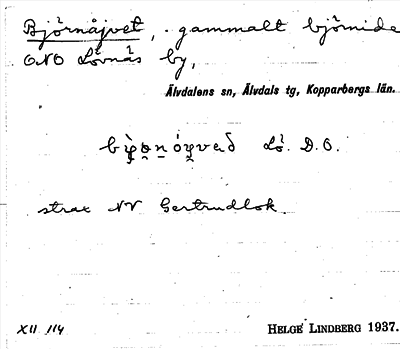 Björnåjvet, gammalt björnide
ONO Lövnäs by,
Älvdalens sn, Älvdals tg, Kopparbergs län.
Lö. D. O.
strax NV Gertrudlok.
XII 114
HELGE LINDBERG 1937.